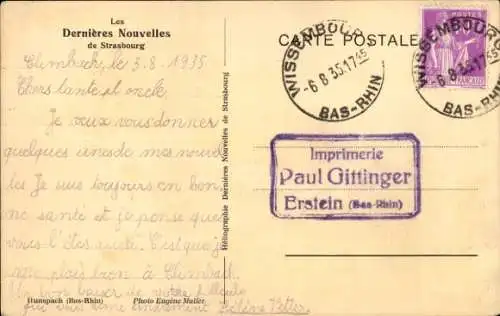 Les
Dernières Nouvelles
de Strasbourg
CARTE POSTALE
WISSEMBOURG
-6.8.35.17 45
BAS-RHIN
WISSEMBOURG
-6.8.35.17 45
BAS-RHIN
POSTES
Climbach, le 3.8.1935
Chers tante et oncle.
Je veux vous donner
quelques unes de mes nouvel
les Je suis toujours en bon
ne santé et je pense que
vous l'êtes aussi. C'est que je
me plais bien à Climbach.
Un bon baiser de votre
qui vous aime tendrement Hélène
Imprimerie
Paul Gittinger
Erstein (Bas-Rhin)
Héliographie Dernières Nouvelles de Strasbourg
Hunspach (Bas-Rhin) Photo Eugène Muller